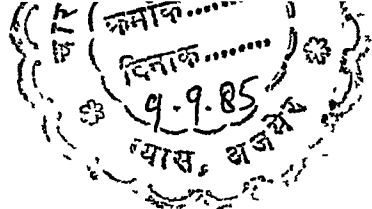 क्रमांक.......
दिनांक.......
9.9.85
न्यास, अजमेर